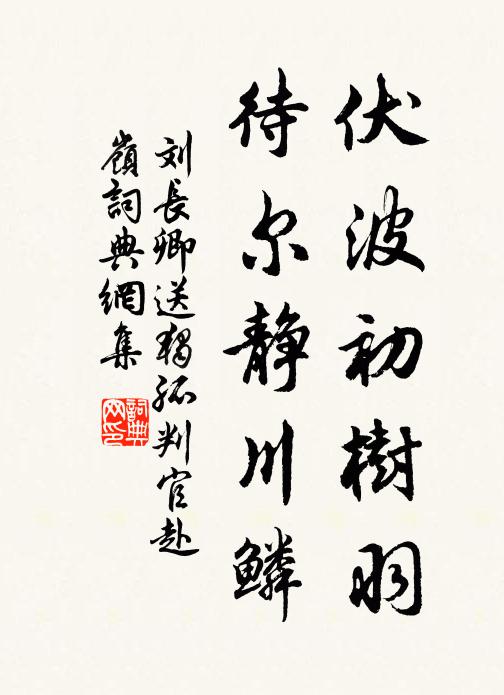 伏波初樹羽
待尔静川鳞
刘長卿送独孤判官赴
嶺詞典網集
詞典网印